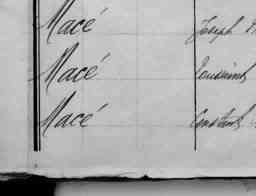 Macé Joseph
Macé Toussaint
Macé Constant